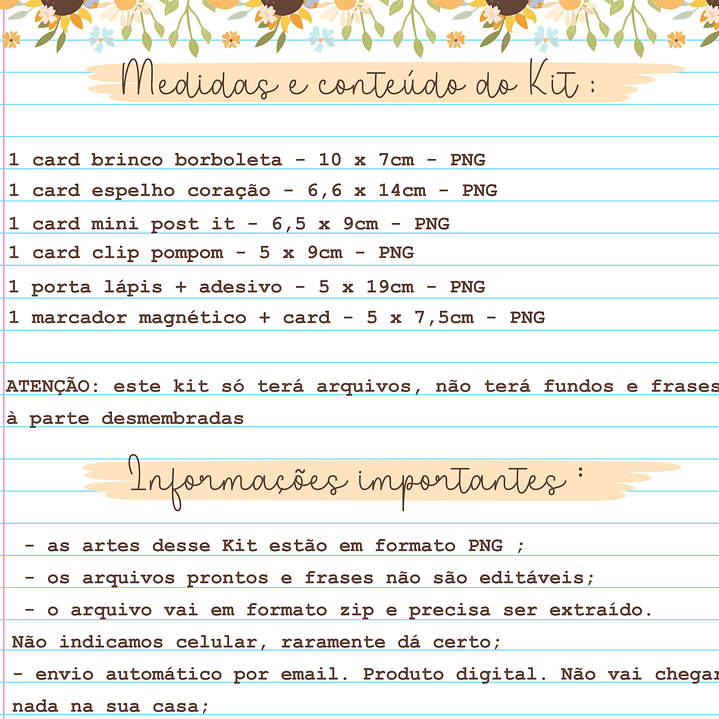 Medidas e conteúdo do Kit :
1 card brinco borboleta - 10 x 7cm - PNG
1 card espelho coração - 6,6 x 14cm - PNG
1 card mini post it - 6,5 x 9cm - PNG
1 card clip pompom - 5 x 9cm - PNG
1 porta lápis + adesivo - 5 x 19cm - PNG
1 marcador magnético + card - 5 x 7,5cm - PNG
ATENÇÃO: este kit só terá arquivos, não terá fundos e frases
à parte desmembradas
Informações importantes :
- as artes desse Kit estão em formato PNG ;
- os arquivos prontos e frases não são editáveis;
- o arquivo vai em formato zip e precisa ser extraído.
Não indicamos celular, raramente dá certo;
- envio automático por email. Produto digital. Não vai chegar
nada na sua casa;